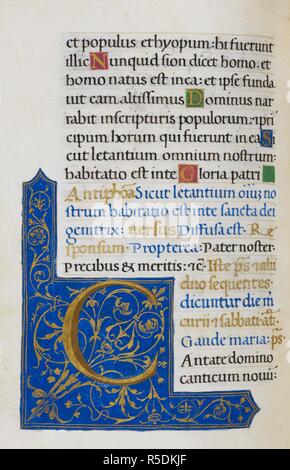 et populus ethyopum: hi fuerunt
illic Nunquid sion dicet homo. et
homo natus est in ea: et ipse funda
uit eam altissimus Dominus nar
rabit in scripturis populorum: 7 pri
cipum horum qui fuerunt in ea Si
cut letantium omnium nostrum:
habitatio est in te Gloria patri
Antiphoa Sicut letantium oiuz no
strum habitatio est in te sancta dei
genitrix: versus Diffusa est. Re
sponsium. Propterea: Pater noster.
Precibus & meritis: 7c. Iste ps̄
dino sequentes
dicuntur die m
curii et sabbati
Gaude maria: ps̄
Cantate domino
canticum nouu:
alamy
Image ID: R5DKJF
www.alamy.com